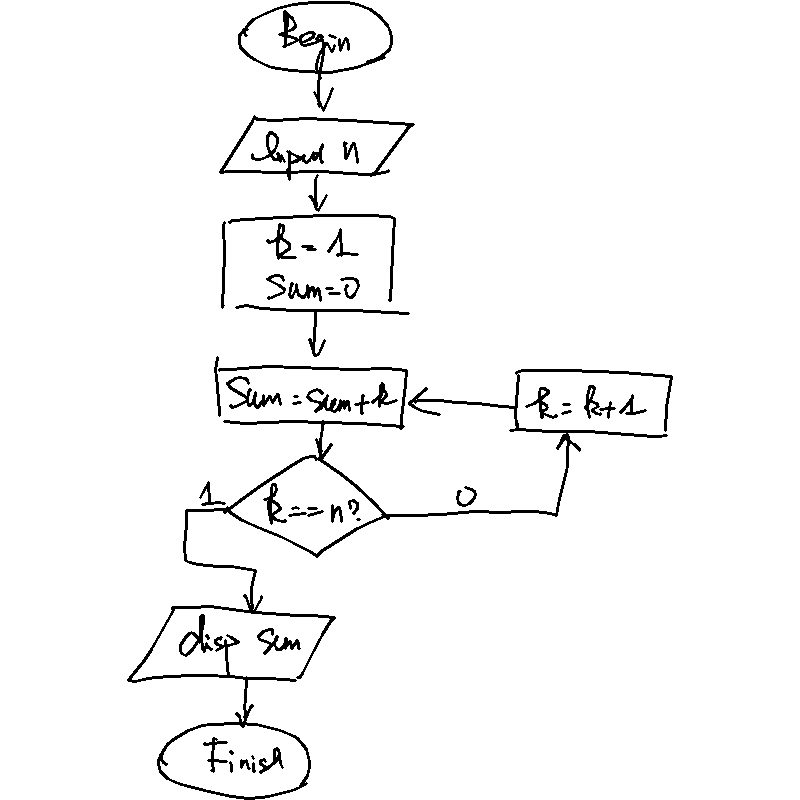 Begin
Input n
k = 1
Sum=0
Sum = sum + k
k = k+1
1
k == n?
0
disp sum
Finish